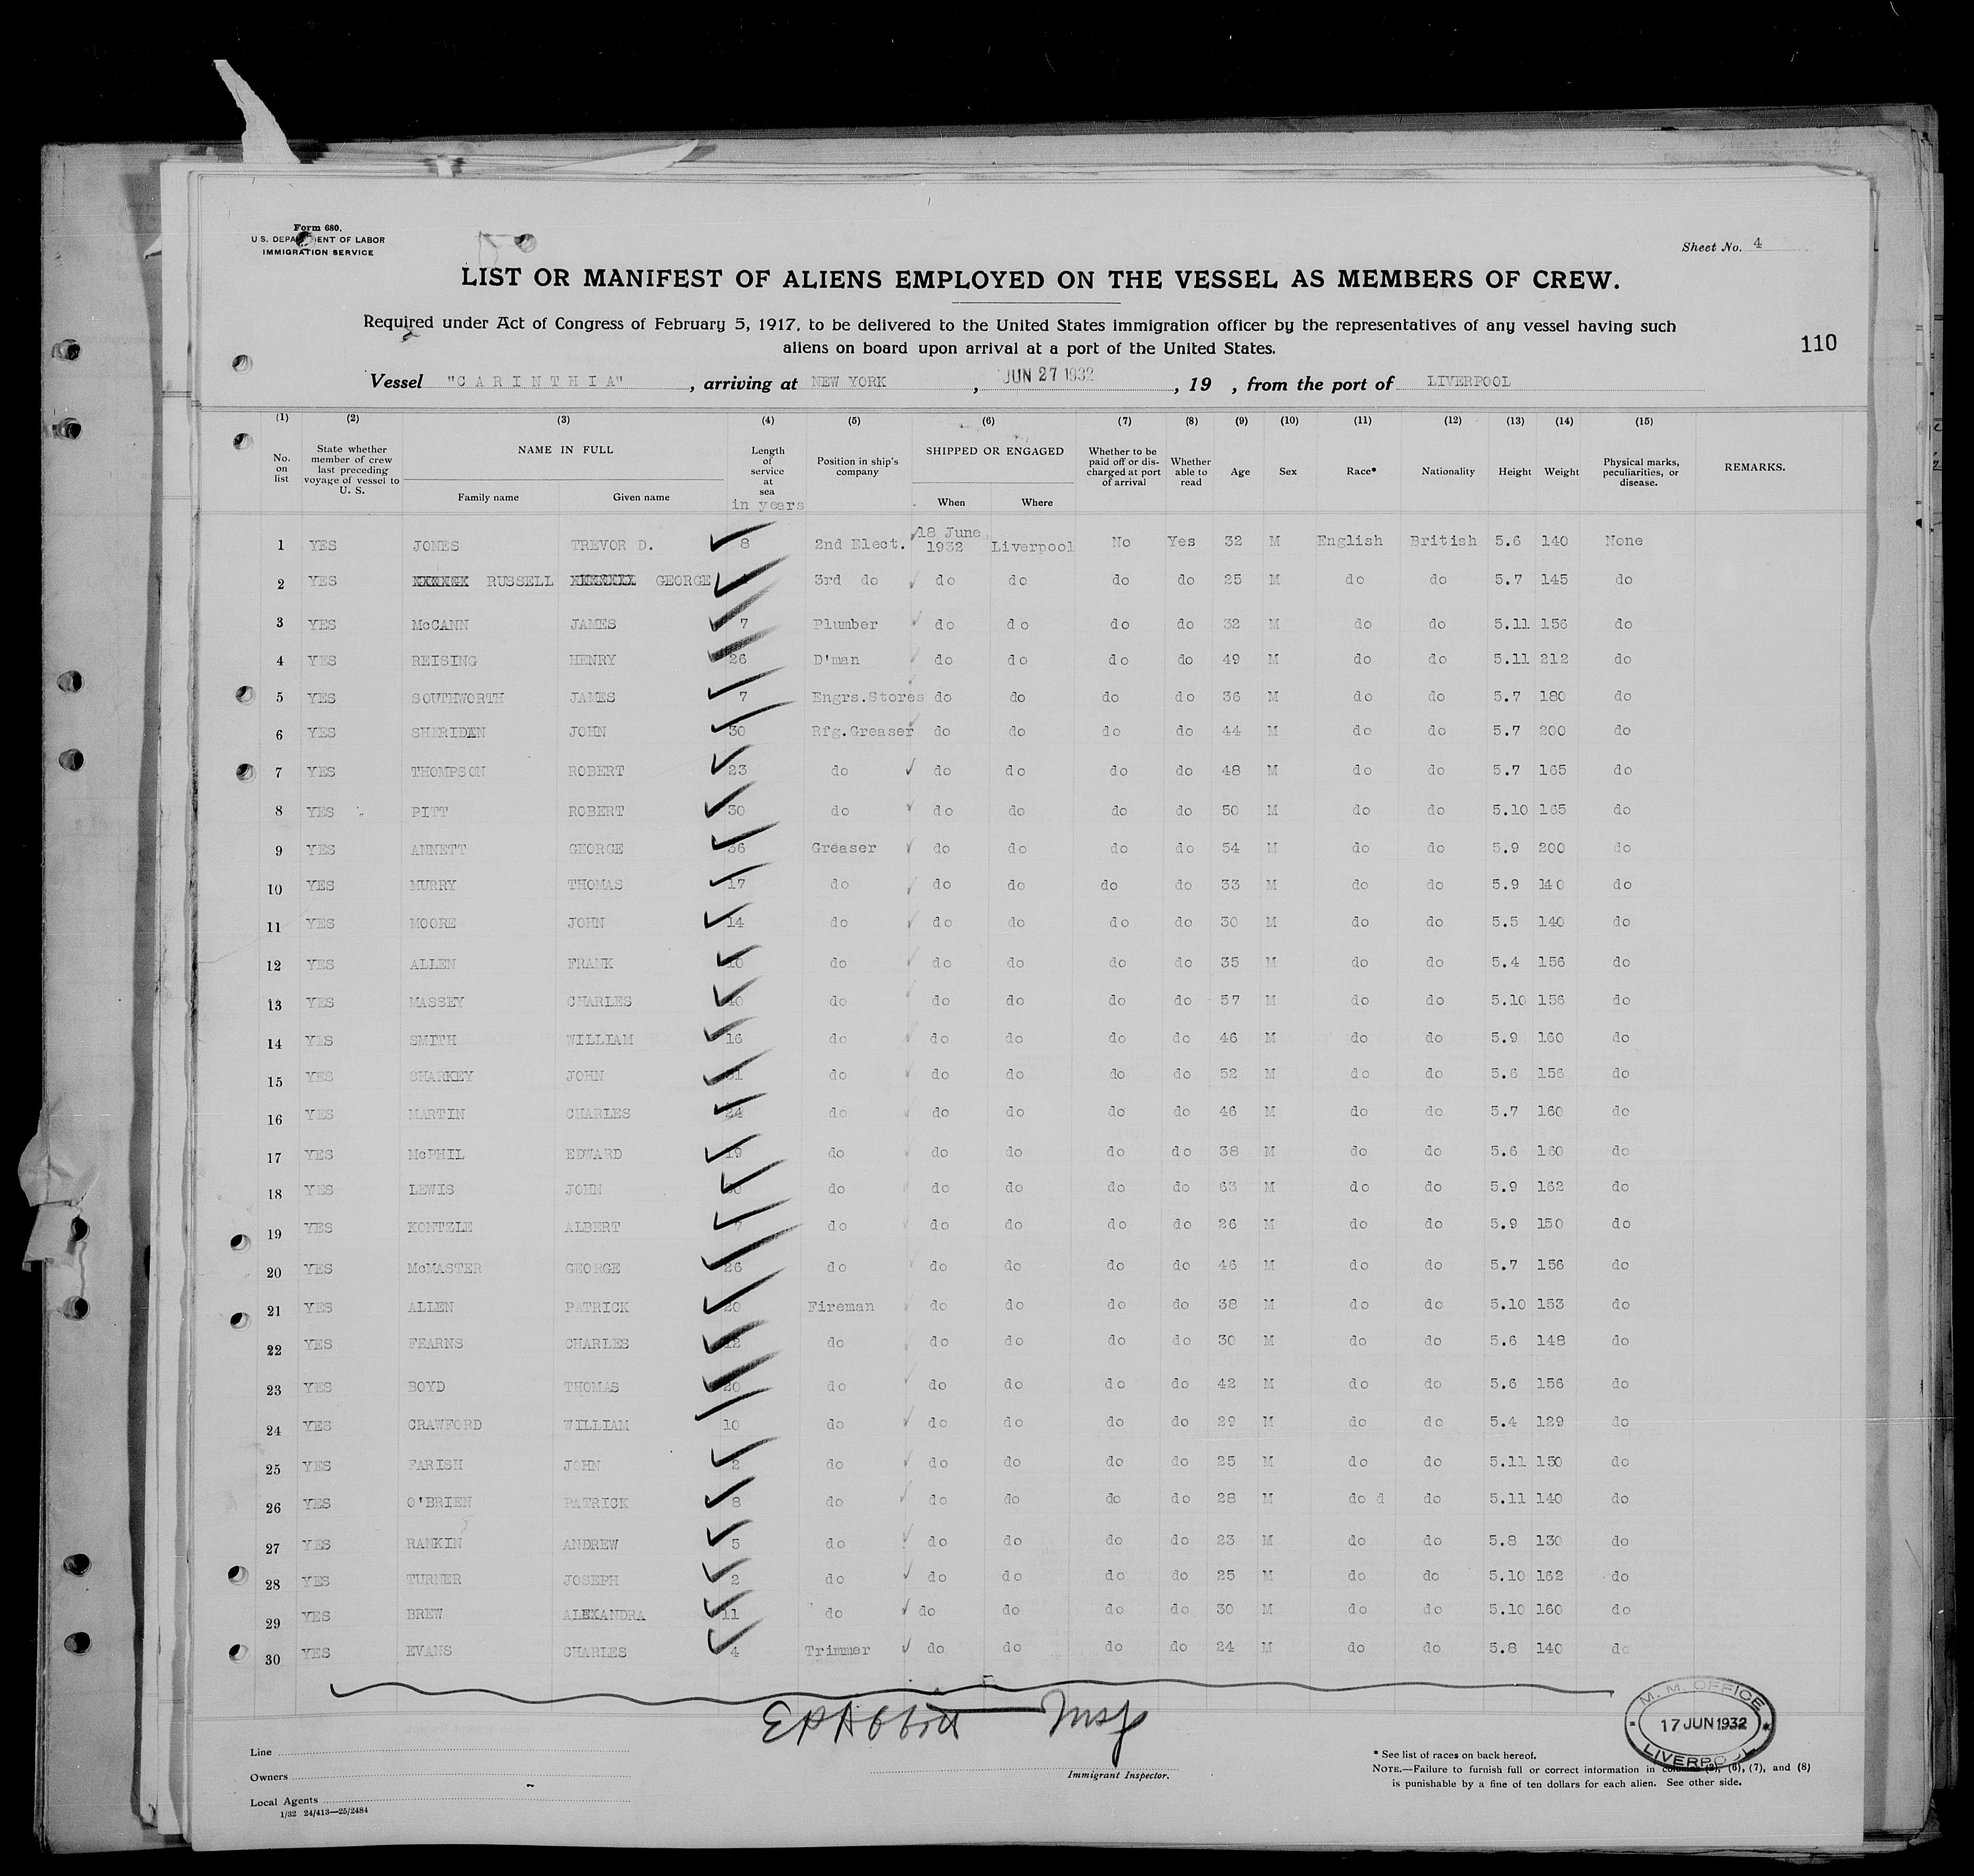 Form 680.
U. S. DEPARTMENT OF LABOR
IMMIGRATION SERVICE
Sheet No. 4
LIST OR MANIFEST OF ALIENS EMPLOYED ON THE VESSEL AS MEMBERS OF CREW.
Required under Act of Congress of February 5, 1917, to be delivered to the United States immigration officer by the representatives of any vessel having such
aliens on board upon arrival at a port of the United States.
110
Vessel "C A R I N T H I A", arriving at NEW YORK, JUN 27 1932, 19 , from the port of LIVERPOOL
(1) (2) (3) (4) (5) (6) (7) (8) (9) (10) (11) (12) (13) (14) (15)
No. on list State whether member of crew last preceding voyage of vessel to U. S. NAME IN FULL Family name Given name Length of service at sea in years Position in ship's company SHIPPED OR ENGAGED When Where Whether to be paid off or discharged at port of arrival Whether able to read Age Sex Race* Nationality Height Weight Physical marks, peculiarities, or disease. REMARKS.
1 YES JONES TREVOR D. 8 2nd Elect. 18 June 1932 Liverpool No Yes 32 M English British 5.6 140 None
2 YES RUSSELL GEORGE 3rd do do do do do 25 M do do 5.7 145 do
3 YES McCANN JAMES 7 Plumber do do do do 32 M do do 5.11 156 do
4 YES REISING HENRY 26 D'man do do do do 49 M do do 5.11 212 do
5 YES SOUTHWORTH JAMES 7 Engrs.Stores do do do do 36 M do do 5.7 180 do
6 YES SHERIDAN JOHN 30 Rfg.Greaser do do do do 44 M do do 5.7 200 do
7 YES THOMPSON ROBERT 23 do do do do do 48 M do do 5.7 165 do
8 YES PITT ROBERT 30 do do do do do 50 M do do 5.10 165 do
9 YES ANNETT GEORGE 36 Greaser do do do do 54 M do do 5.9 200 do
10 YES MURRY THOMAS 17 do do do do do 33 M do do 5.9 140 do
11 YES MOORE JOHN 14 do do do do do 30 M do do 5.5 140 do
12 YES ALLEN FRANK 10 do do do do do 35 M do do 5.4 156 do
13 YES MASSEY CHARLES 40 do do do do do 57 M do do 5.10 156 do
14 YES SMITH WILLIAM 16 do do do do do 46 M do do 5.9 160 do
15 YES SHARKEY JOHN do do do do do 52 M do do 5.6 156 do
16 YES MARTIN CHARLES 24 do do do do do 46 M do do 5.7 160 do
17 YES McPHIL EDWARD 19 do do do do do 38 M do do 5.6 160 do
18 YES LEWIS JOHN do do do do do 63 M do do 5.9 162 do
19 YES KONTZLE ALBERT 7 do do do do do 26 M do do 5.9 150 do
20 YES McMASTER GEORGE 26 do do do do do 46 M do do 5.7 156 do
21 YES ALLEN PATRICK 20 Fireman do do do do 38 M do do 5.10 153 do
22 YES FEARNS CHARLES 12 do do do do do 30 M do do 5.6 148 do
23 YES BOYD THOMAS 20 do do do do do 42 M do do 5.6 156 do
24 YES CRAWFORD WILLIAM 10 do do do do do 29 M do do 5.4 129 do
25 YES FARISH JOHN 2 do do do do do 25 M do do 5.11 150 do
26 YES O'BRIEN PATRICK 8 do do do do do 28 M do d do 5.11 140 do
27 YES RANKIN ANDREW 5 do do do do do 23 M do do 5.8 130 do
28 YES TURNER JOSEPH 2 do do do do do 25 M do do 5.10 162 do
29 YES BREW ALEXANDRA 11 do do do do do 30 M do do 5.10 160 do
30 YES EVANS CHARLES 4 Trimmer do do do do 24 M do do 5.8 140 do
M. M. OFFICE
17 JUN 1932
LIVERPOOL
Line
Owners
Local Agents
1/32 24/413—25/2484
Immigrant Inspector.
* See list of races on back hereof.
NOTE.—Failure to furnish full or correct information in columns (6), (7), and (8)
is punishable by a fine of ten dollars for each alien. See other side.